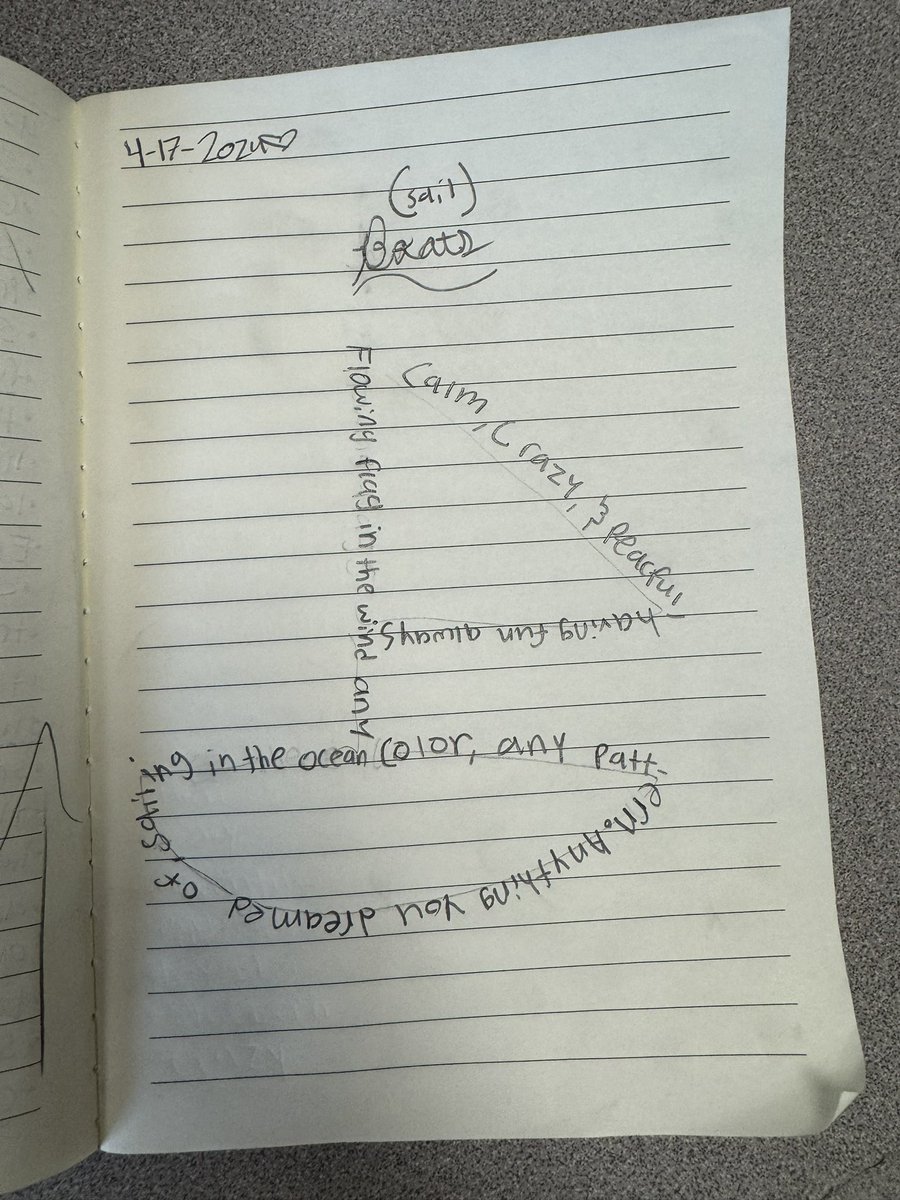 4-17-2024
(sail)
Boats
Calm, Crazy, & peacful
-having fun always
Flowing flag in the wind any
color, any patt-
ern. Anything you dreamed
of, sailing in the ocean